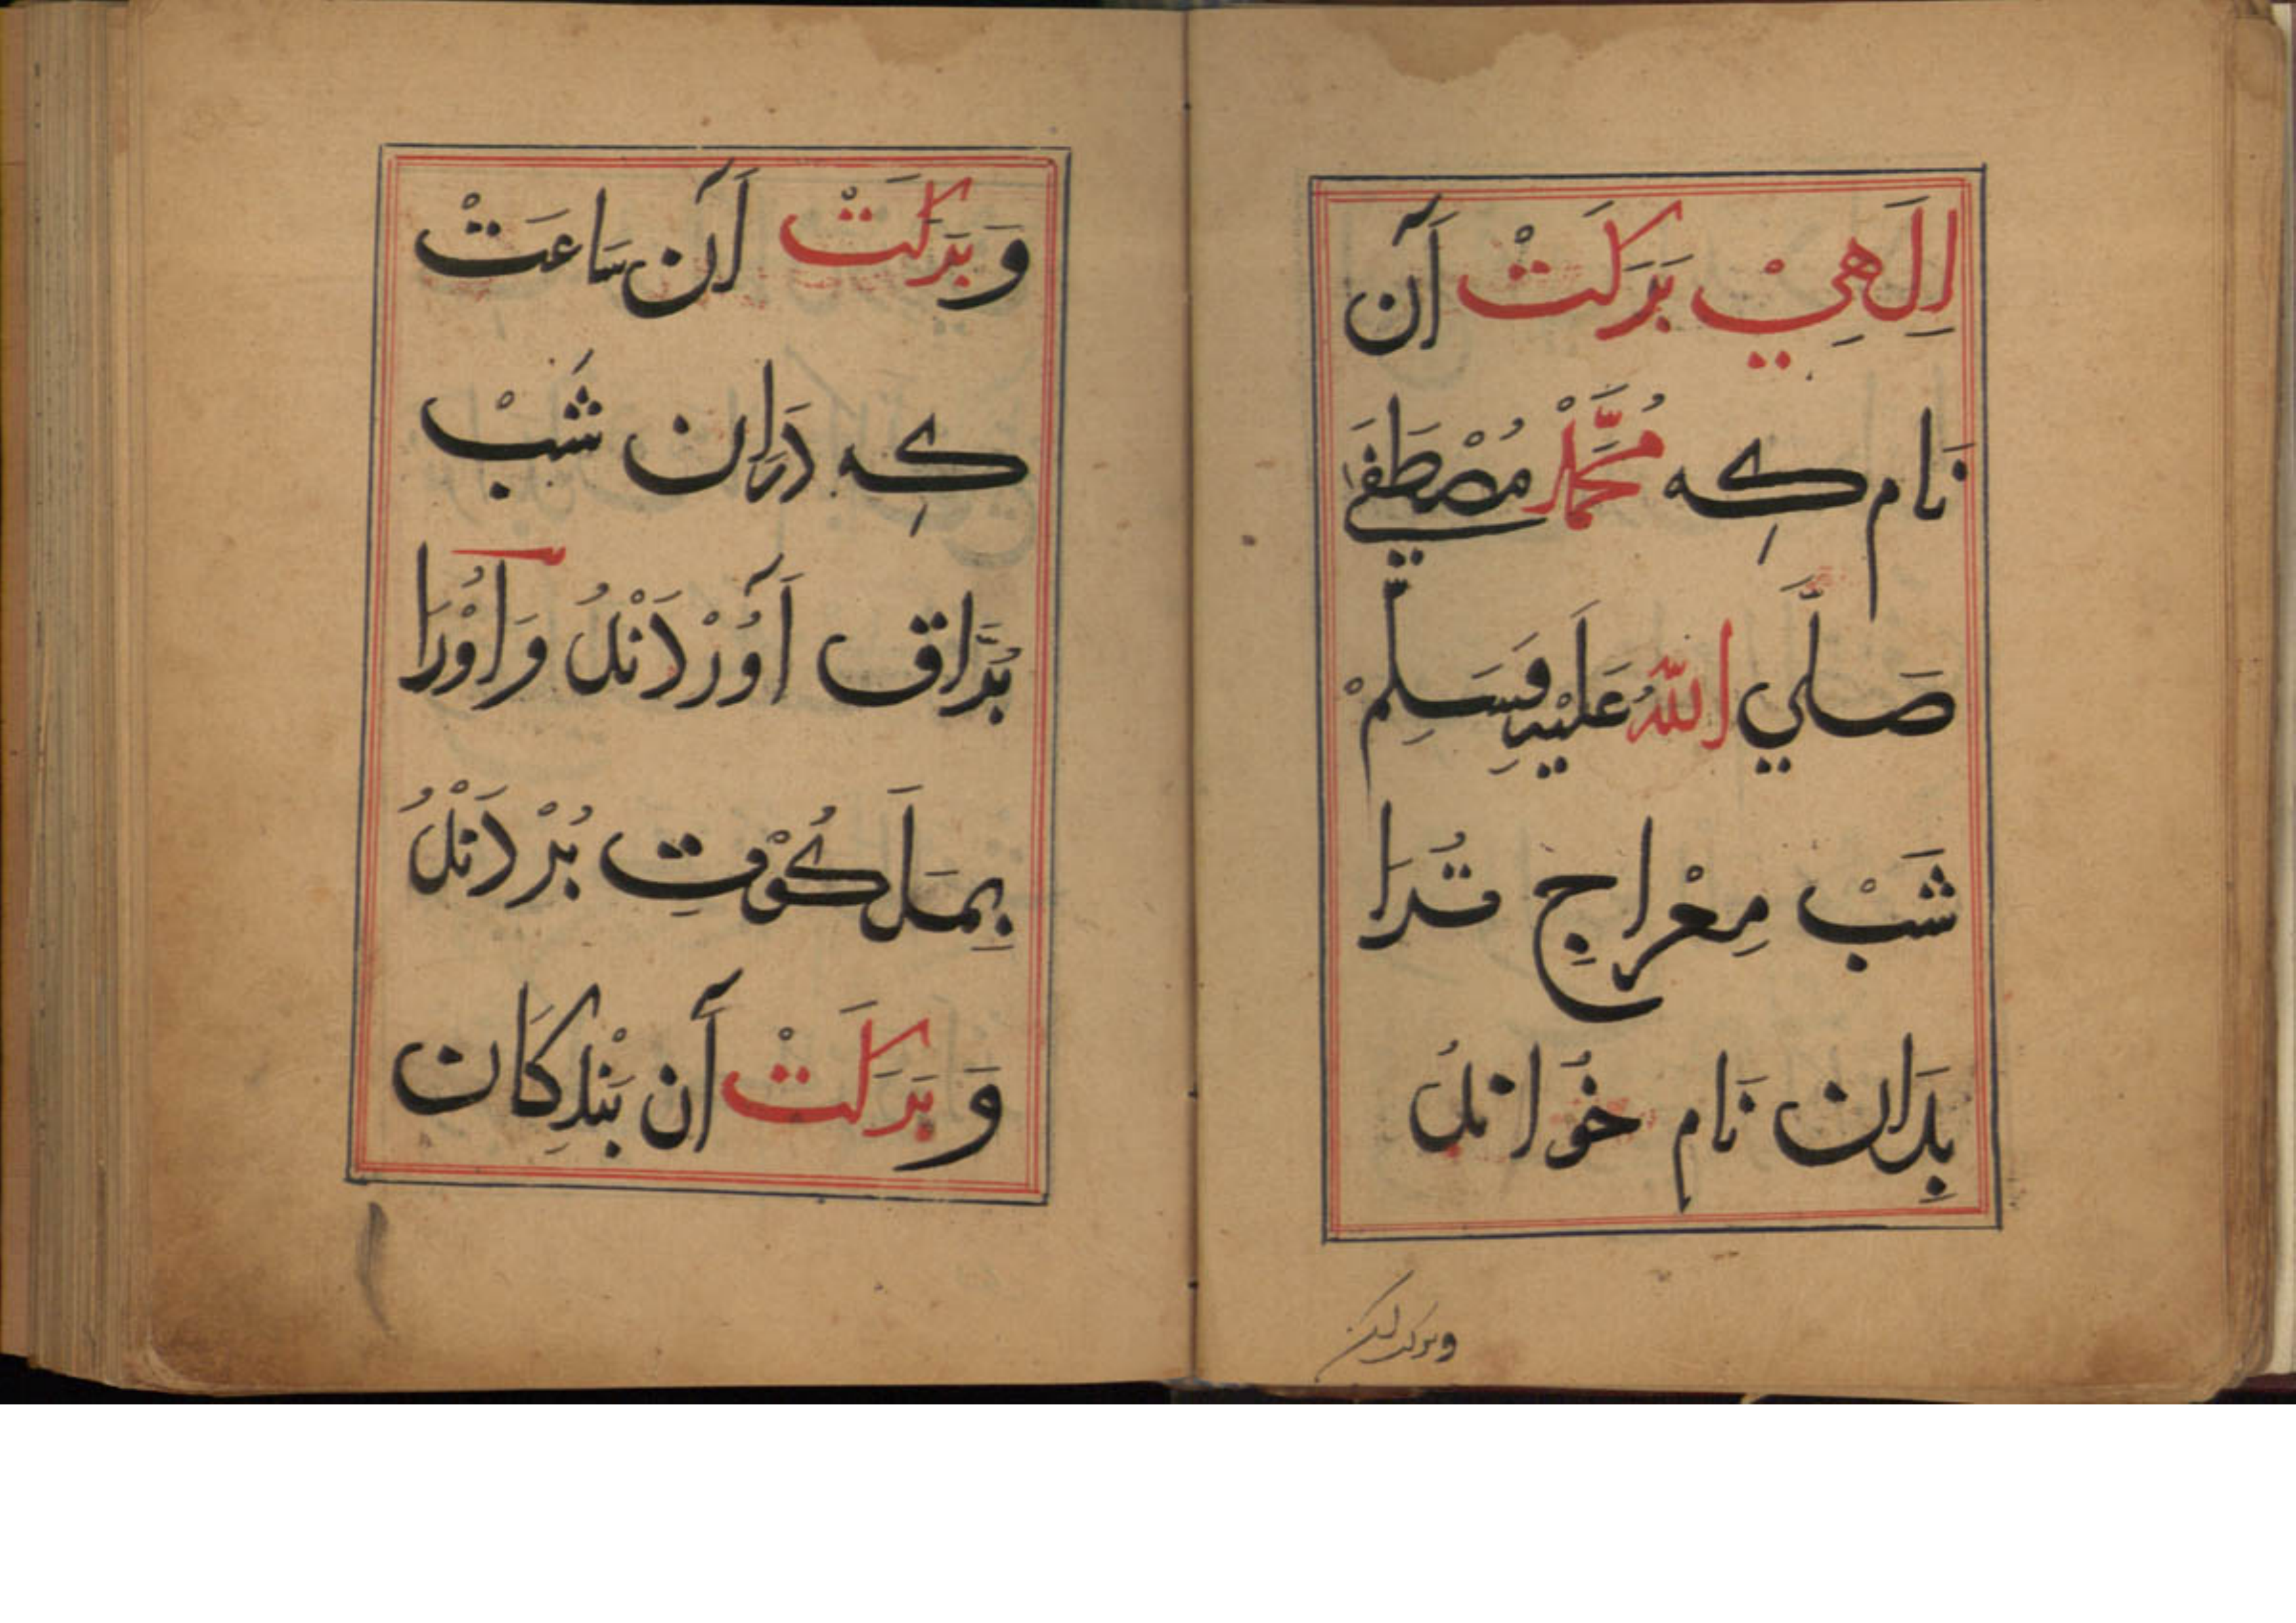 اِلَهِيْ بَرَكَتْ آن
نَام كِه مُحَمَّدْ مُصْطَفَي
صَلَّي اللّهُ عَلَيْهِ وَسَلِمْ
شَبْ مِعْرَاجِ تُرَا
بِدَان نَام خُوانند
وبركت
وَ بَرَكَتْ آن سَاعَتْ
كِه دَرَان شَبْ
بُرَّاق آوُرْدَنْدُ وَ اُوْرَا
بِمَلَكُوْتِ بُرْدَنْدُ
وَ بَرَكَتْ آن بَنْدِكَان